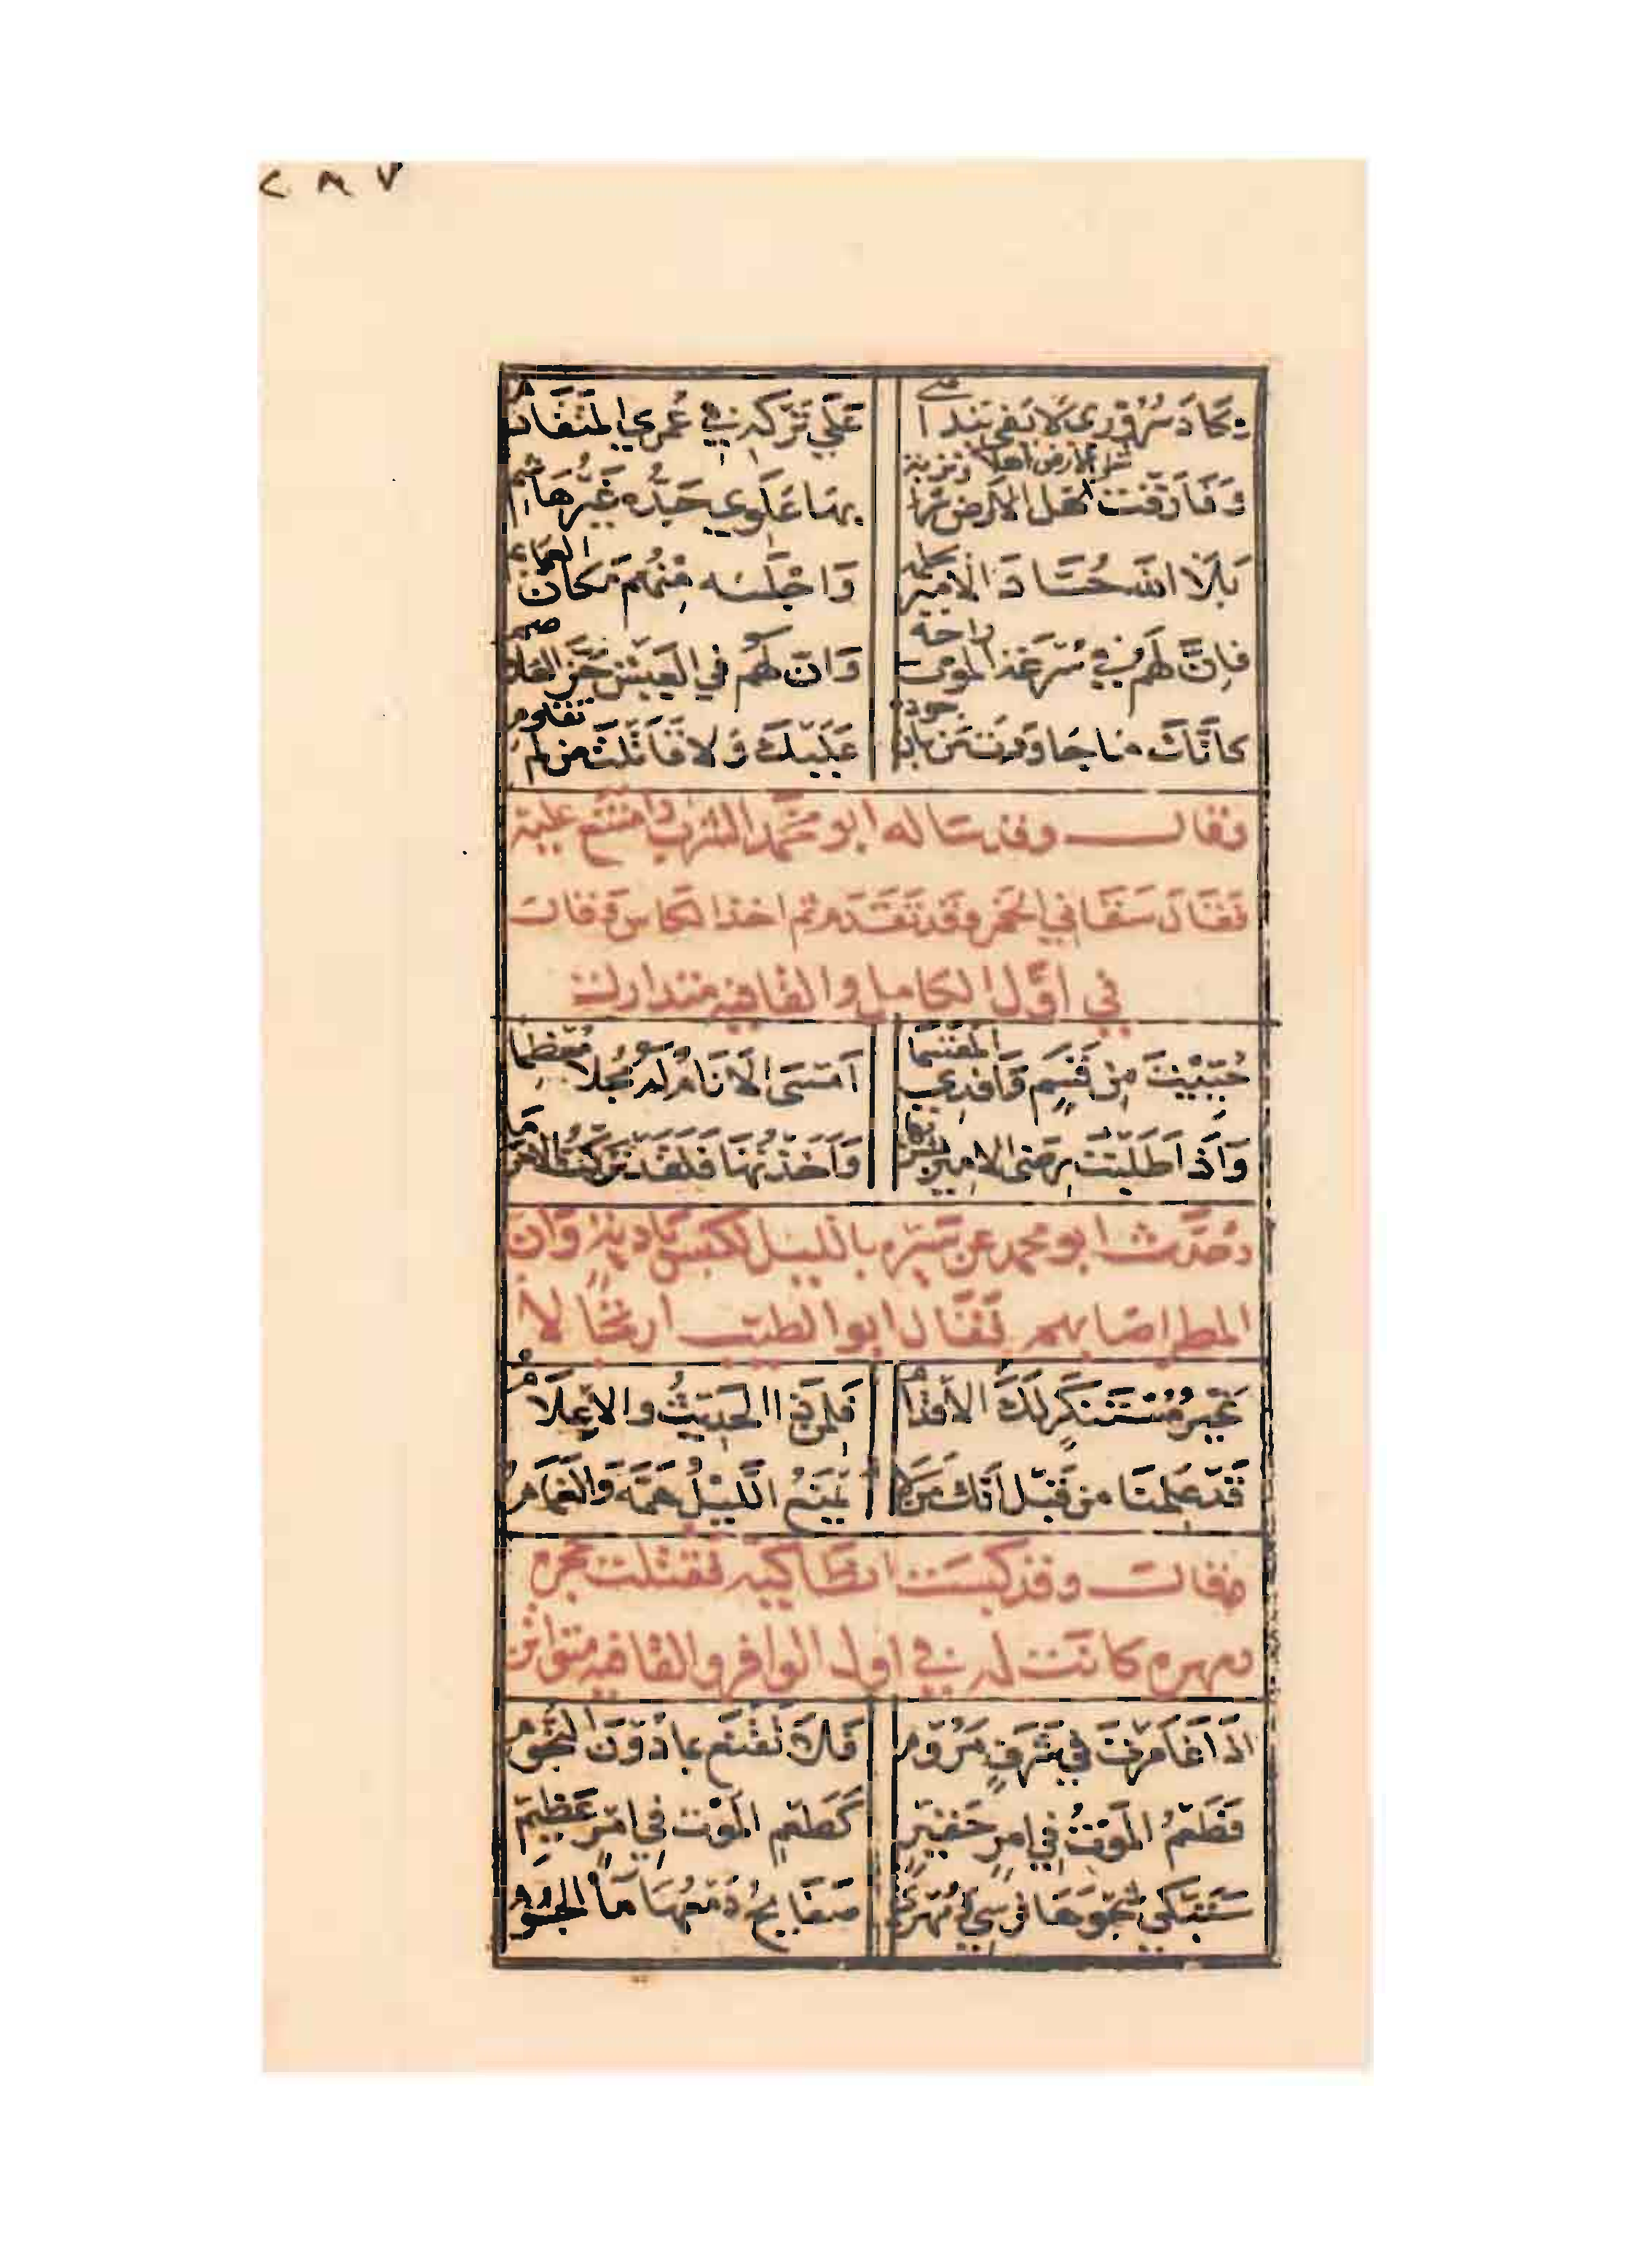 ٢٨٧
يكَادَ سُرُوْرِى لَا يَفى بندامتى عَلَى تَرْكِهِ فِي عُمرِي المتَقادِم
وَفَارَقت اهل الارض شر الارض اهلا وتربة بهَا عَلَوِي جَدُّه غَيْر هَاشِم
بَلَا الله حُسَّادَ الامِير بحلمه وَاجْلَسَه مِنْهُم مَكانَ العمائم
فاِنَّ لَهُم فِي سُرْعَة الموت راحة وَان لهُم في العَيش حَزَّ الغلاصم
كَأنَّكَ مَا جَاوَدت مَن بان جوده عَلَيْكَ وَلا قَاتَلت من لم تقاوم
وقال وقد ساله ابو محَمَّد الشرب وامتنع عليه
فقَال سَقَانِي الخَمر وقد تقَدم ثم اخذ الكاس وقال
في اوَّل الكامل والقافيه متدارك
حُيِّيْتَ مِن قَسَمٍ وَافْدِي المقسما اَمْسَى الاَنَامُ لَهُ مُجِلا معُظِما
وَاذَا طَلَبْت رِضَى الامِير بشربها وَاَخَذْتُهَا فَلَقَد تَرَكْتُ الاحرما
وحَدَّث ابو محمد عن سَيْره بالليل لكبس بَادِيَة وَان
المطر اصَابهم فَقَال ابو الطيب ارتجَالا
غَيْر مُسْتَنكَرٍ لَكَ الاقْدَام فَلِمَنْ ذا الحَدِيثُ والاِعْلَام
قَدْ عَلِمْنَا مِن قَبْل اَنّك مَن لَا يَمْنَعُ اللَّيْلُ هَمَّه وَالغَمَام
وقال وقد كبست انطَاكِيَه فقتلت حجره
ومهره كانَت له في اول الوافر والقافيه متواتر
اذَا غَامَرْتَ في شَرَفٍ مَرُوْمِ فَلَا تَقْنَع بمَا دُوْنَ النُّجُوم
فَطَعْمُ الموْتِ فِي امْرٍ حَقِيْرٍ كَطَعْمِ المَوْت فِي امْرٍ عَظِيْمِ
سَتَبكي شَجْوَهَا فَرَسِي وَمُهْرِي صَفَايحُ دَمْعُهَا مَا الجُسُوم